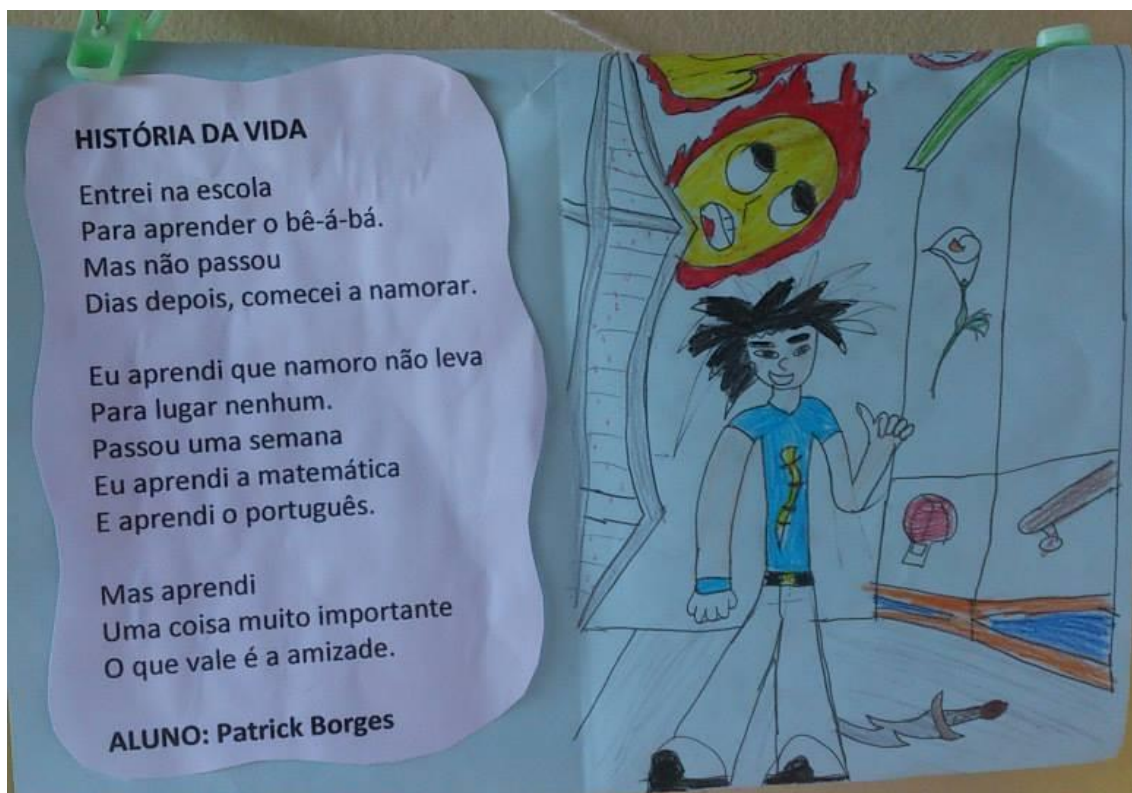 HISTÓRIA DA VIDA
Entrei na escola
Para aprender o bê-á-bá.
Mas não passou
Dias depois, comecei a namorar.
Eu aprendi que namoro não leva
Para lugar nenhum.
Passou uma semana
Eu aprendi a matemática
E aprendi o português.
Mas aprendi
Uma coisa muito importante
O que vale é a amizade.
ALUNO: Patrick Borges